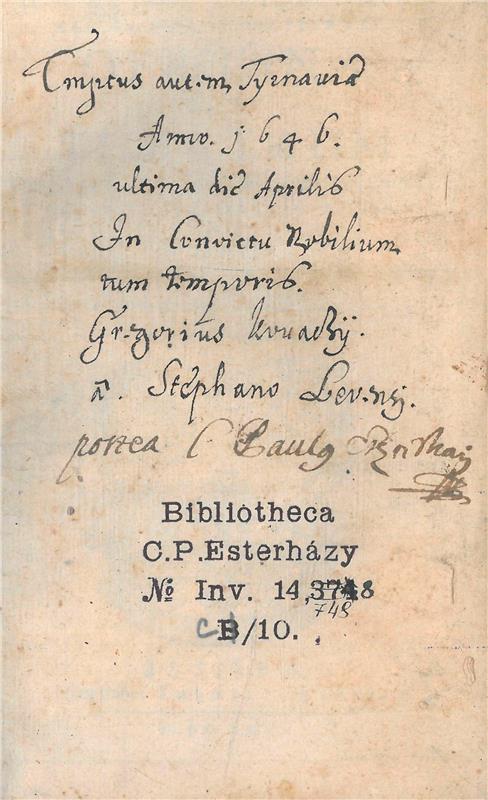 Emptus autem Tyrnaviæ
Anno. 1646.
ultima die Aprilis
In Convictu Nobilium
tum temporis.
Gregorius Kovachÿ.
a. Stephano
postea C Paulg
Bibliotheca
C.P.Esterházy
№ Inv. 14,3748
748
B/10.